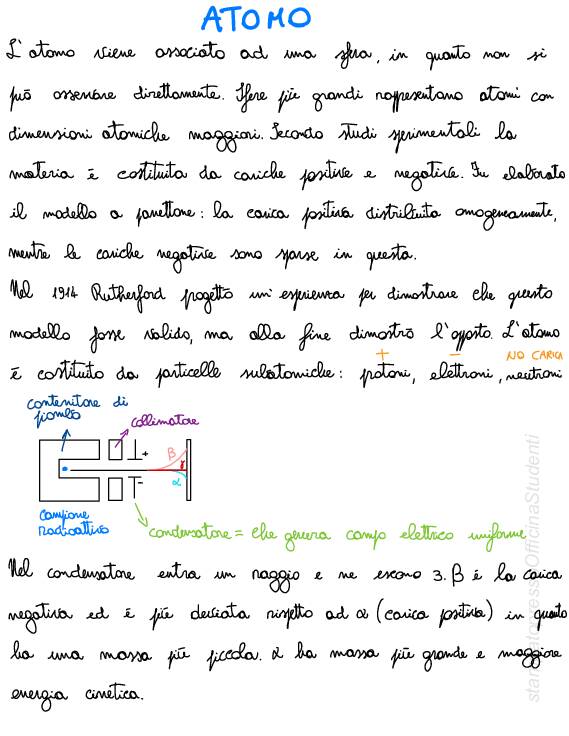 ATOMO
L'atomo viene associato ad una sfera, in quanto non si
può osservare direttamente. Sfere più grandi rappresentano atomi con
dimensioni atomiche maggiori. Secondo studi sperimentali la
materia è costituita da cariche positive e negative. Fu elaborato
il modello a panettone: la carica positiva distribuita omogeneamente,
mentre le cariche negative sono sparse in questa.
Nel 1914 Rutherford progettò un'esperienza per dimostrare che questo
modello fosse valido, ma alla fine dimostrò l'opposto. L'atomo
+ - NO CARICA
è costituito da particelle subatomiche: protoni, elettroni, neutroni
contenitore di
piombo
collimatore
+
β
γ
α
-
campione
radioattivo
condensatore = che genera campo elettrico uniforme
Nel condensatore entra un raggio e ne escono 3. β è la carica
negativa ed è più deviata rispetto ad α (carica positiva) in quanto
ha una massa più piccola. α ha massa più grande e maggiore
energia cinetica.
OfficinaStudenti